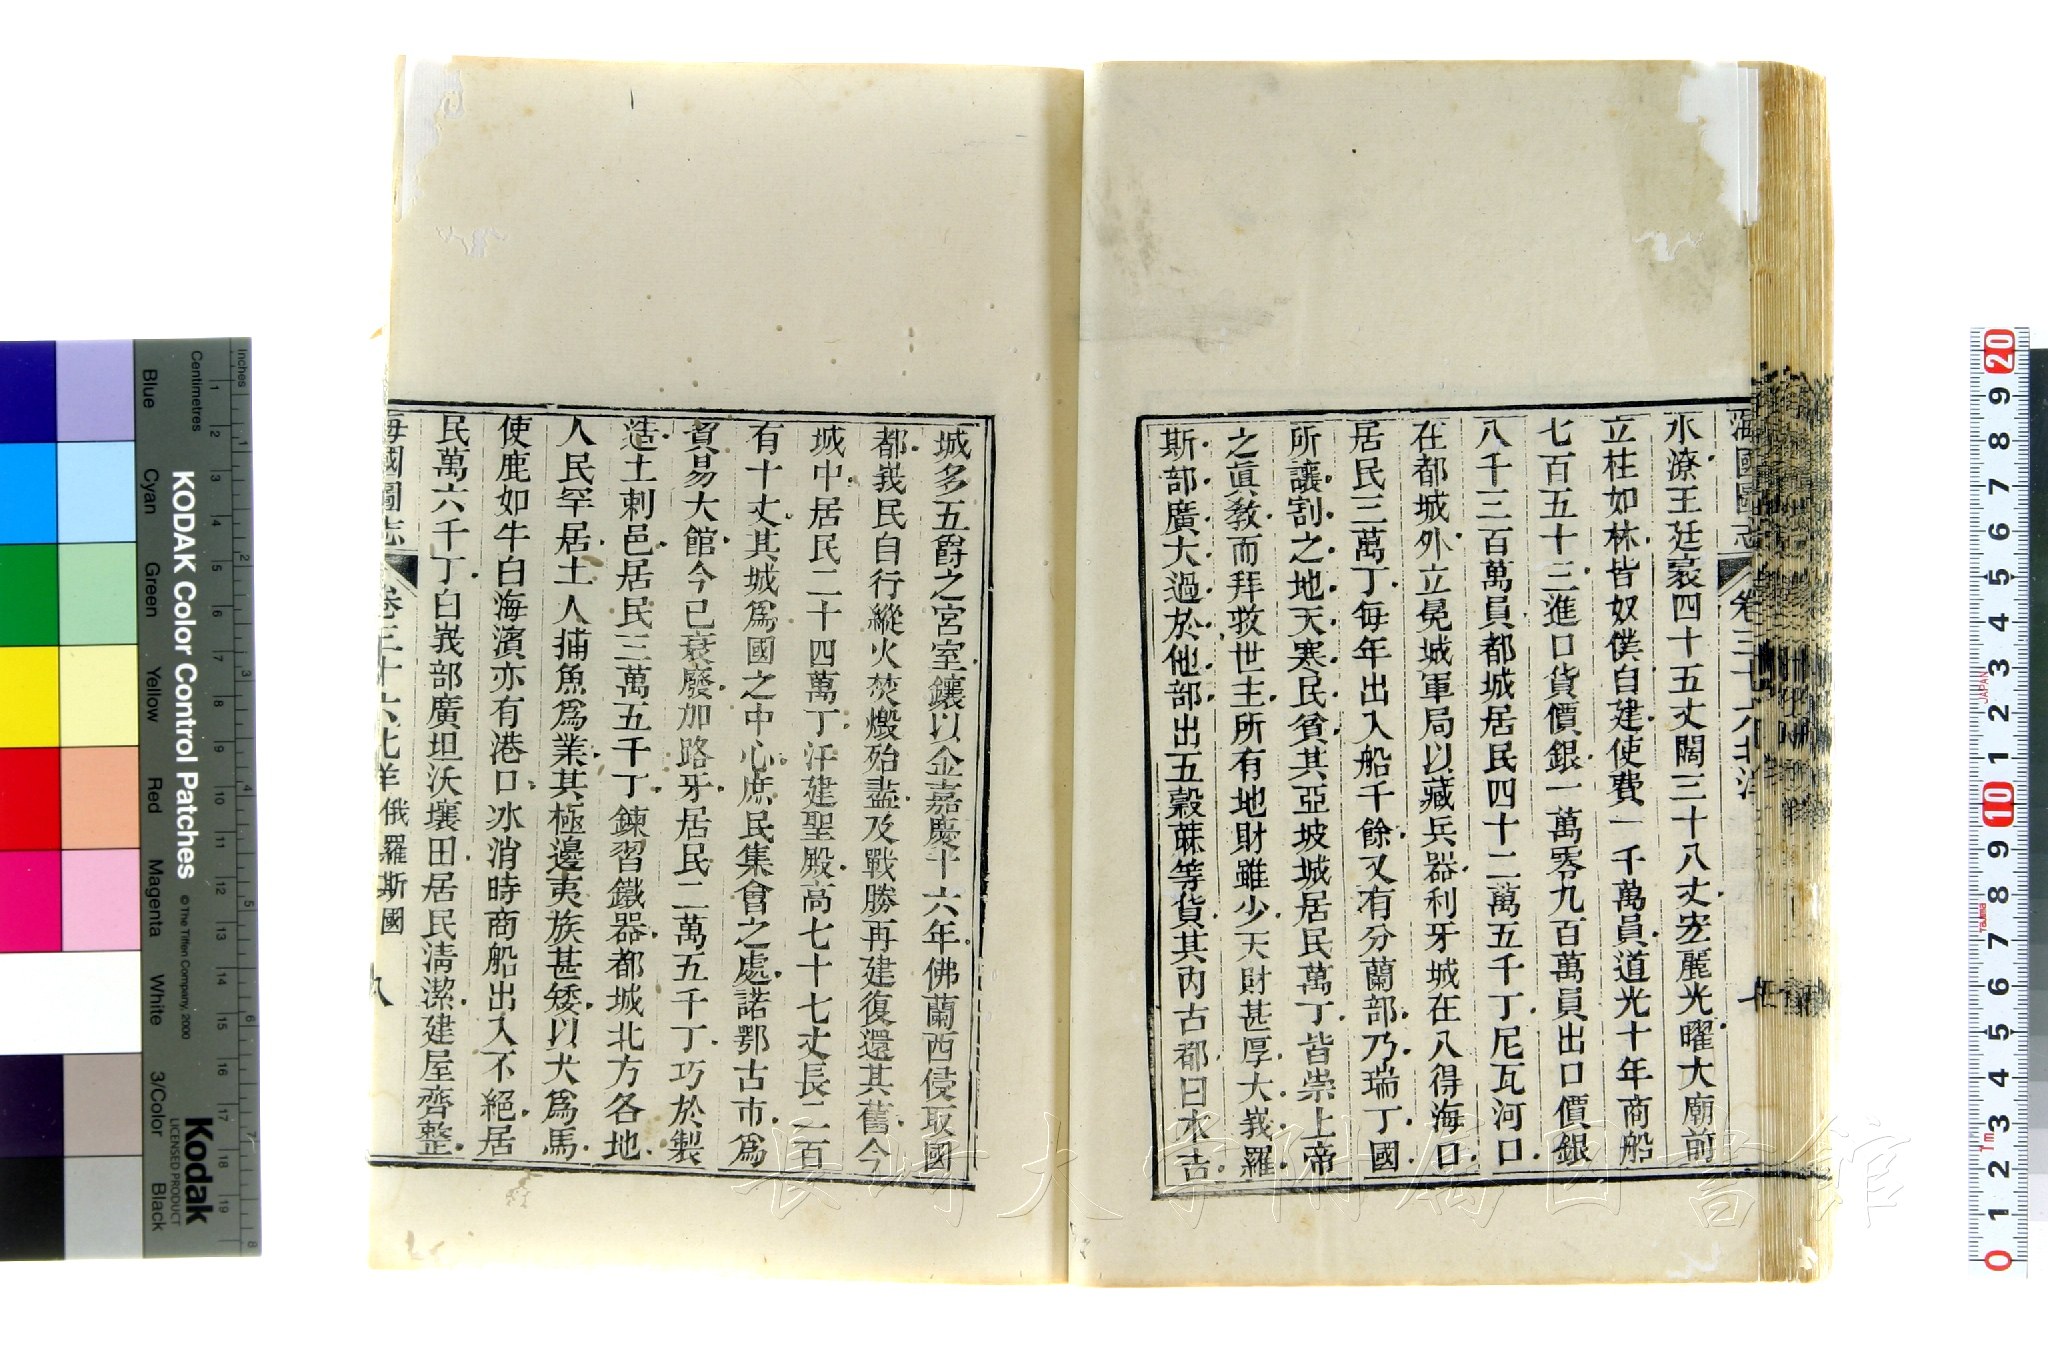 水潦王廷裹四十五丈闊三十八丈宏麗光曜大廟前
立柱如林皆奴僕自建使費一千萬員道光十年商船
七百五十三進口貨價銀一萬零九百萬員出口價銀
八千三百萬員都城居民四十二萬五千丁尼瓦河口
在都城外立冕城軍局以藏兵器利牙城在八得海口
居民三萬丁每年出入船千餘又有分蘭部乃瑞丁國
所讓割之地天寒民貧其亞坡城居民萬丁皆崇上帝
之眞敎而拜救世主所有地財雖少天財甚厚大峩羅
斯部廣大過於他部出五穀蔴等貨其內古都曰水古
城多五爵之宮室鑲以金嘉慶十六年佛蘭西侵取國
都峩民自行縱火焚燬殆盡及戰勝再建復還其舊今
城中居民二十四萬丁汗建聖殿高七十七丈長二百
有十丈其城爲國之中心庶民集會之處諾鄂古市爲
貿易大館今已衰廢加路牙居民二萬五千丁巧於製
造土刺邑居民三萬五千丁鍊習鐵器都城北方各地
人民罕居土人捕魚爲業其極邊夷族甚矮以犬爲馬
使鹿如牛白海濱亦有港口冰消時商船出入不絕居
民萬六千丁白峩部廣坦沃壤田居民淸潔建屋齊整
海國圖志 卷三十六北洋 俄羅斯國 八
KODAK Color Control Patches
© The Tiffen Company, 2000
Kodak
LICENSED PRODUCT
Inches
Centimetres
Blue
Cyan
Green
Yellow
Red
Magenta
White
3/Color
Black
JAPAN
長崎大学附属図書館